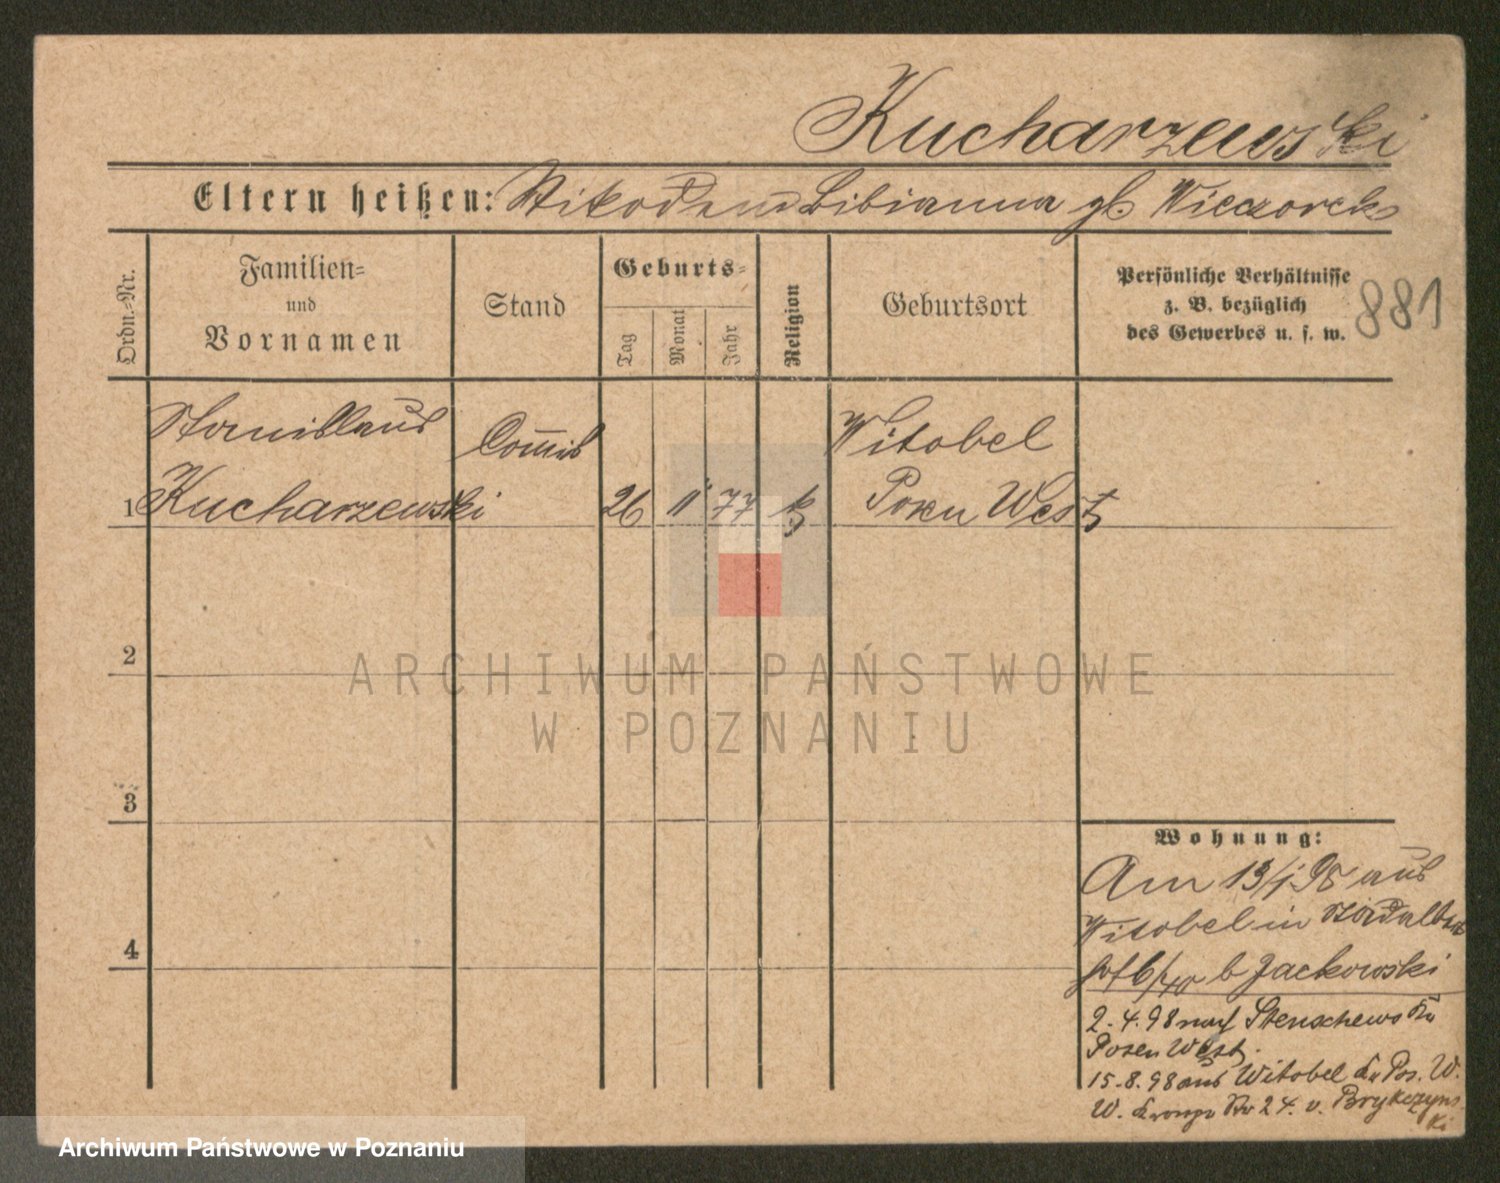 Kucharzewski
Eltern heißen: Nikodem Bibianna gb. Wieczorek
Ordn.-Nr.
Familien-
und
Vornamen
Stand
Geburts-
Tag
Monat
Jahr
Religion
Geburtsort
Persönliche Verhältnisse
z. B. bezüglich
des Gewerbes u. s. w.
881
Stanislaus
Commis
Witobel
1 Kucharzewski 26 11 77 k Posen West
2
ARCHIWUM PAŃSTWOWE
W POZNANIU
3
Wohnung:
Am 13/ 98 aus
Witobel in
b Jackowski
4
2.4.98 nach Stenschewo Kr
Posen West.
15.8.98 aus Witobel Kr Pos. W.
W. Nr 24. v. Brykczyns
ki
Archiwum Państwowe w Poznaniu